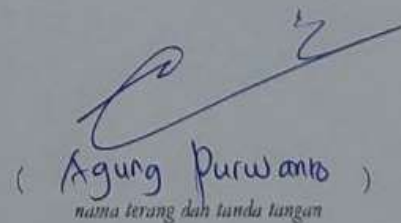 ( Agung Purwanto )
nama terang dan tanda tangan